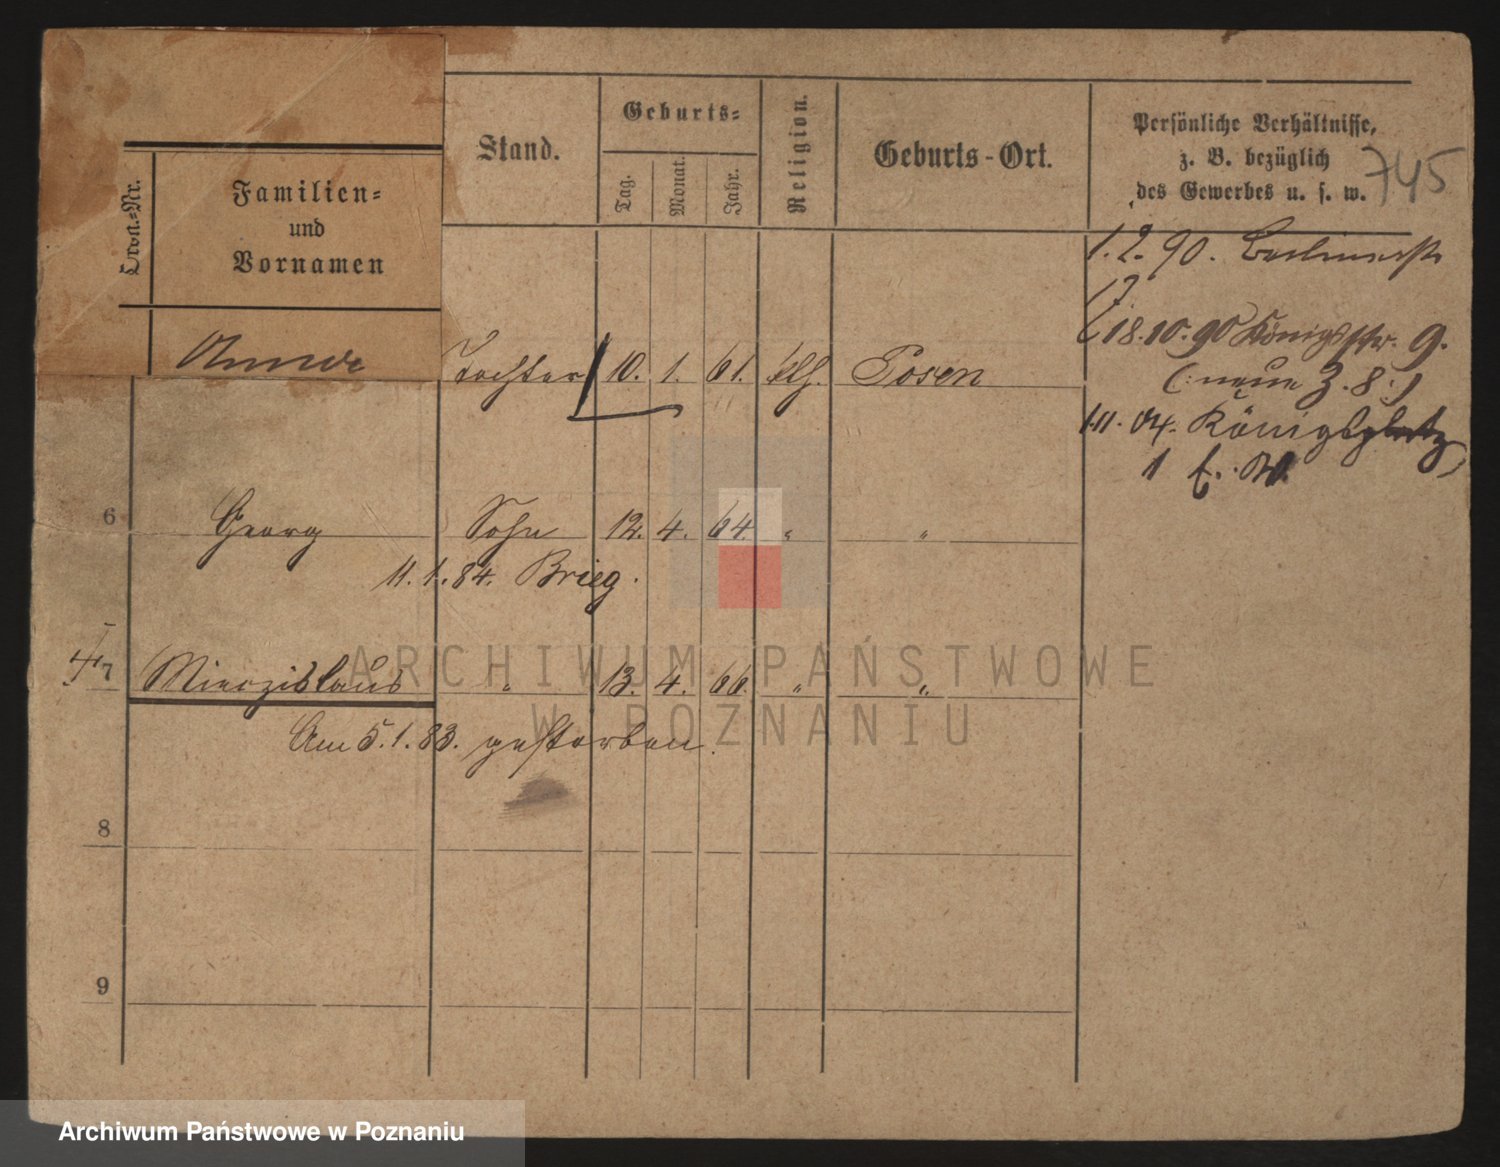 Ordn.-Nr.
Familien-
und
Vornamen
Stand.
Geburts-
Tag.
Monat.
Jahr.
Religion.
Geburts-Ort.
Persönliche Verhältnisse,
z. B. bezüglich
des Gewerbes u. s. w.
745
Tochter 10. 1. 61. Posen
6 Georg Sohn 12. 4. 64. " "
11. 1. 84. Brieg.
7 Mieczislaus " 13. 4. 66. " "
Am 5. 1. 83. gestorben.
8
9
1. 2. 90. Berlinerstr
17
18. 10. 90 Königsstr. 9.
(: neue 3. 8 :)
1.11. 04. Königsplatz
1
ARCHIWUM PAŃSTWOWE
W POZNANIU
Archiwum Państwowe w Poznaniu